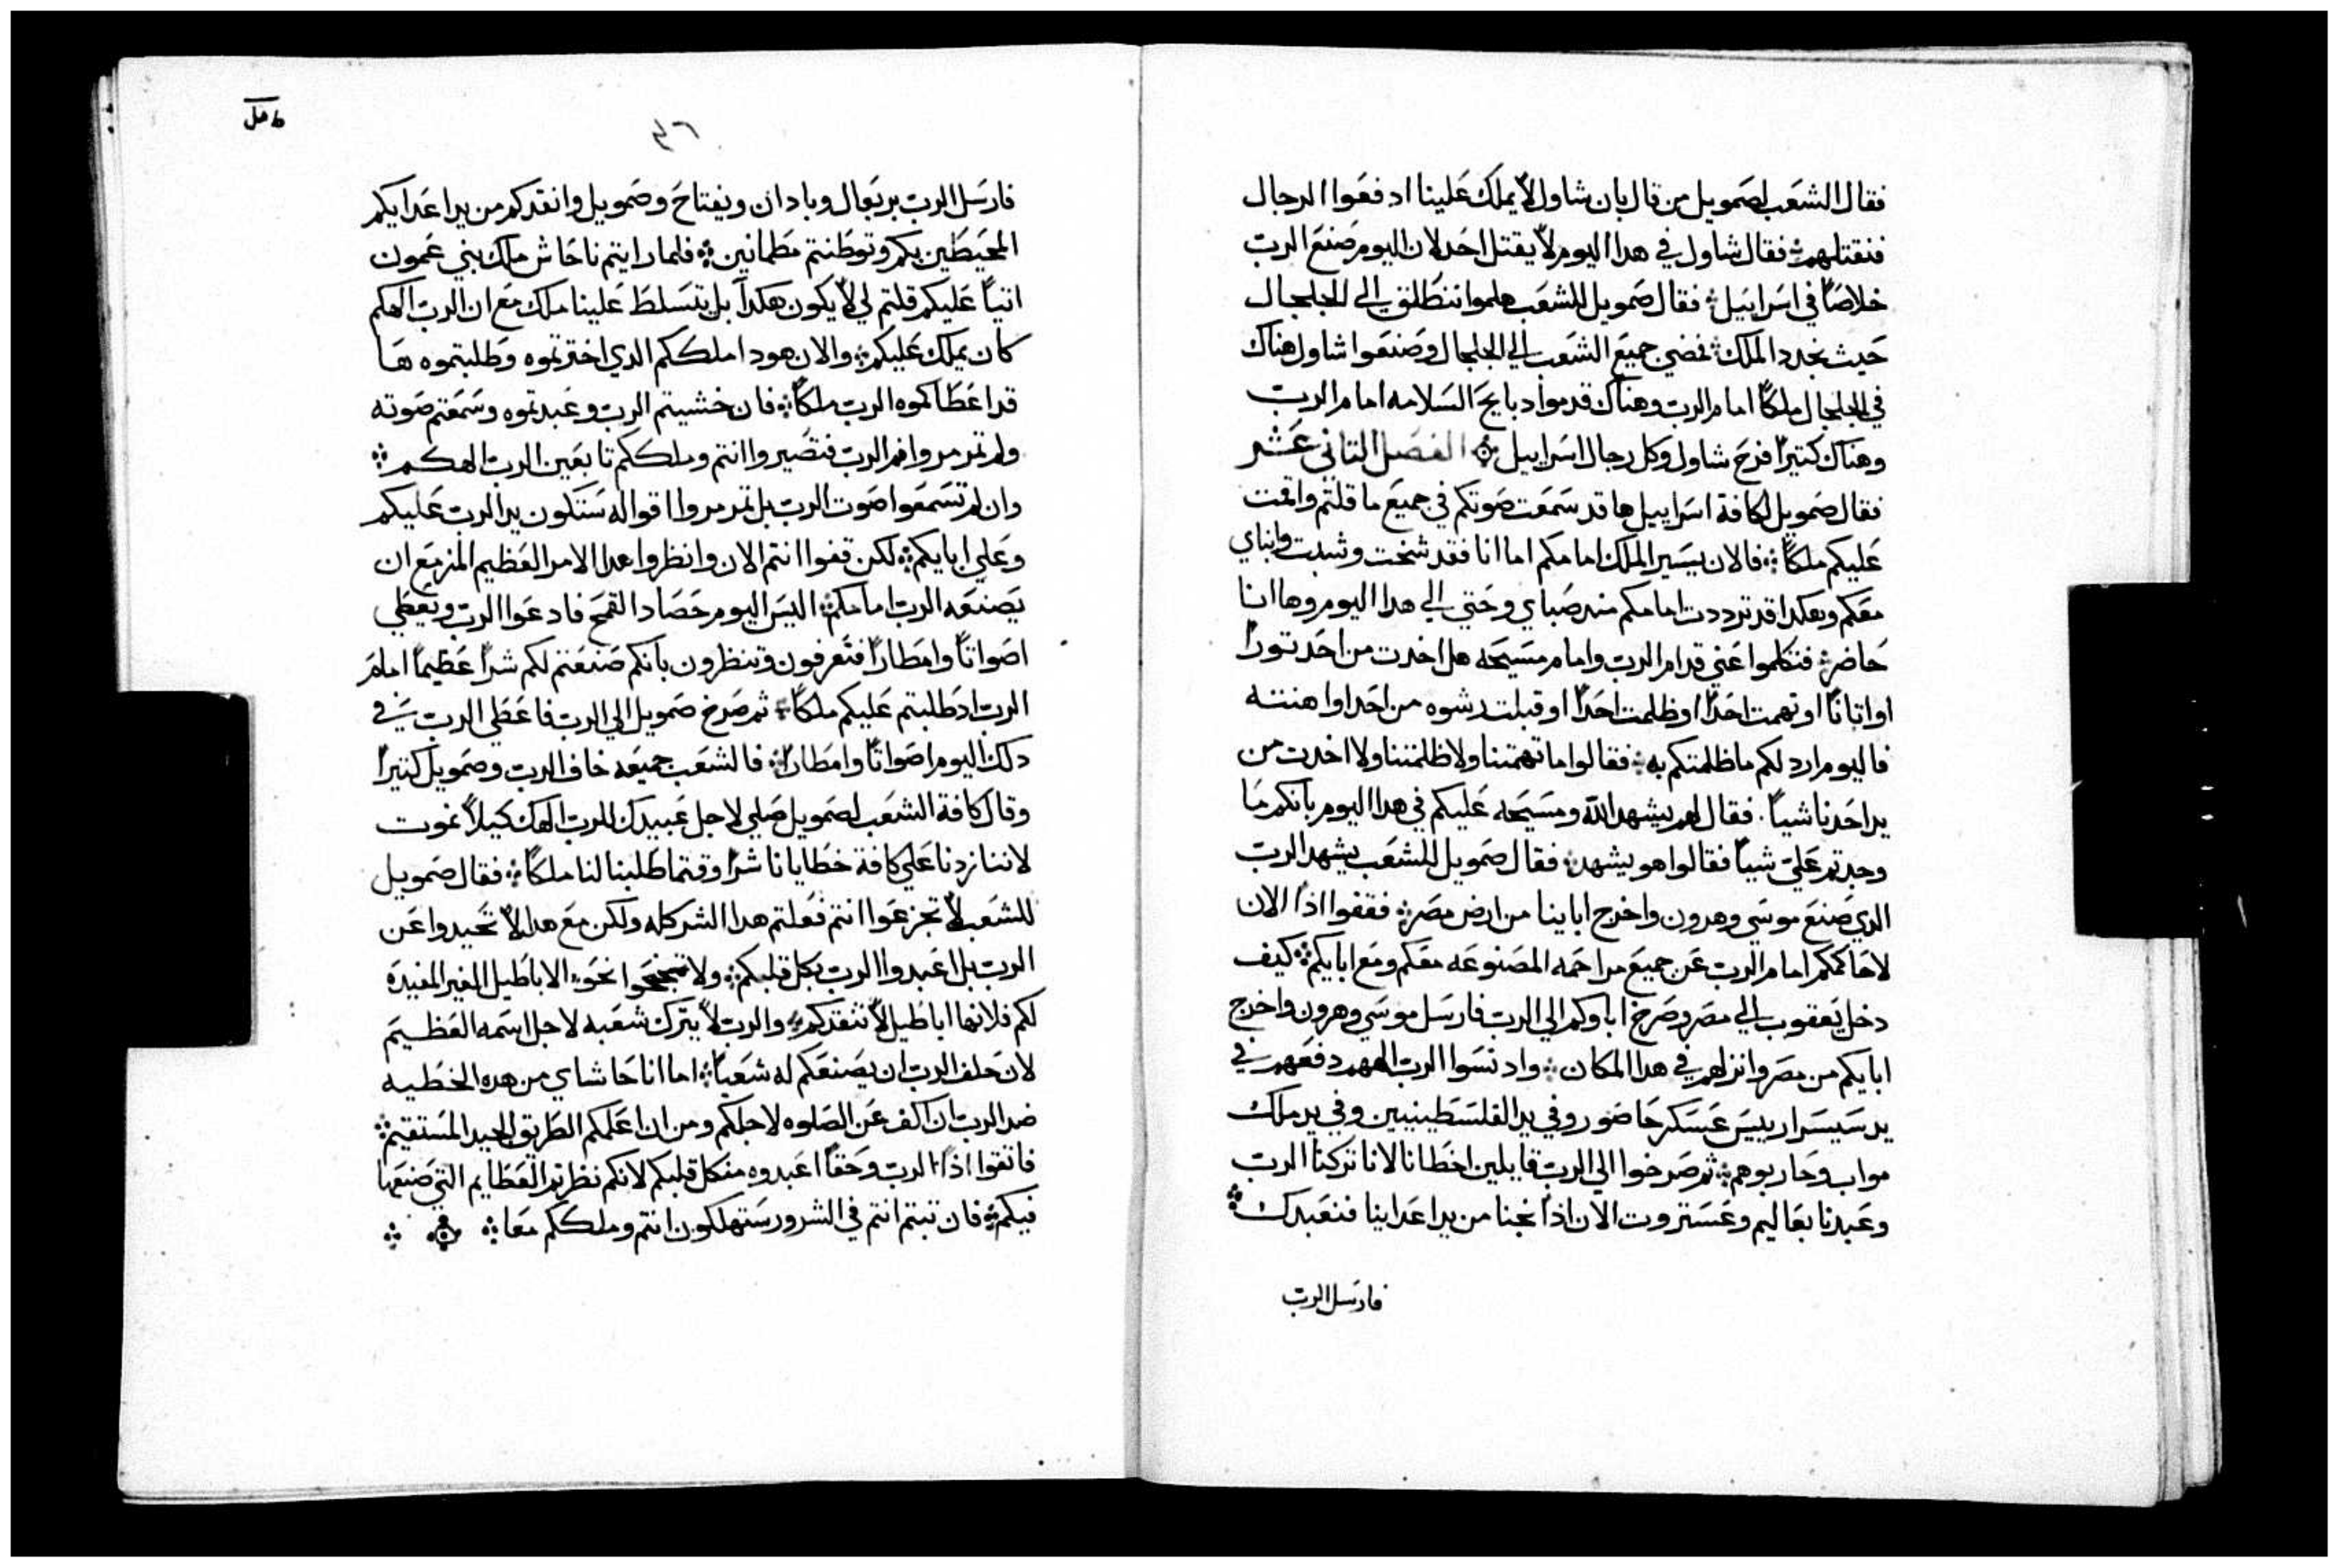 فقال الشعب لصمويل من قال بان شاول لا يملك علينا ادفعوا الرجال
فنقتلهم فقال شاول في هدا اليوم لا يقتل احد لان اليوم صنع الرب
خلاصاً في اسراييل فقال صمويل للشعب هلموا ننطلق الي الجلجال
حيث نجدد الملك فمضي جميع الشعب الي الجلجال وصنعوا شاول هناك
في الجلجال ملكاً امام الرب وهناك قدموا دبايح السلامه امام الرب
وهناك كتيراً فرح شاول وكل رجال اسراييل الفصل التاني عشر
فقال صمويل لكافة اسراييل ها قد سمعت صوتكم في جميع ما قلتم واقمت
عليكم ملكاً فالان يسير الملك امامكم اما انا فقد شخت وشبت وابناي
معكم وهكدا قد ترددت امامكم مند صباي وحتي الي هدا اليوم وها انا
حاضر فتكلموا عني قدام الرب وامام مسيحه هل اخدت من احد توراً
او اتاناً او تهمت احداً او ظلمت احداً او قبلت رشوه من احد او اهنته
فاليوم ارد لكم ما ظلمتكم به فقالوا ما تهمتنا ولا ظلمتنا ولا اخدت من
يد احدنا شياً فقال لهم يشهد الله ومسيحه عليكم في هدا اليوم بانكم ما
وجدتم علي شياً فقالوا هو يشهد فقال صمويل للشعب يشهد الرب
الدي صنع موسي وهرون واخرج اباينا من ارض مصر فقفوا اذاً الان
لاحاكمكم امام الرب عن جميع مراحمه المصنوعه معكم ومع ابايكم كيف
دخل يعقوب الي مصر وصرخ اباوكم الي الرب فارسل موسي وهرون واخرج
ابايكم من مصر وانزلهم في هدا المكان واد نسوا الرب الههم دفعهم في
يد سيسرا رييس عسكر حاصور وفي يد الفلسطينيين وفي يد ملك
مواب وحاربوهم ثم صرخوا الي الرب قايلين اخطانا لانا تركنا الرب
وعبدنا بعاليم وعستروت الان اذاً نجنا من يد اعداينا فنعبدك
فارسل الرب
٤٦
فارسل الرب يربعال وبادان ويفتاح وصمويل وانقدكم من يد اعدايكم
المحيطين بكم وتوطنتم مطمانين فلما رايتم ناحاش ملك بني عمون
اتياً عليكم قلتم لي لا يكون هكدا بل يتسلط علينا ملك مع ان الرب الهكم
كان يملك عليكم والان هودا ملككم الدي اخترتموه وطلبتموه ها
قد اعطاكموه الرب ملكاً فان خشيتم الرب وعبدتموه وسمعتم صوته
ولم تمرمروا فم الرب فتصيروا انتم وملككم تابعين الرب الهكم
وان لم تسمعوا صوت الرب بل تمرمروا اقواله ستكون يد الرب عليكم
وعلي ابايكم لكن قفوا انتم الان وانظروا هدا الامر العظيم المزمع ان
يصنعه الرب امامكم اليس اليوم حصاد القمح فادعوا الرب ويعطي
اصواتاً وامطاراً فتعرفون وتنظرون بانكم صنعتم لكم شراً عظيماً امام
الرب اد طلبتم عليكم ملكاً ثم صرخ صمويل الي الرب فاعطي الرب في
دلك اليوم اصواتاً وامطاراً فالشعب جميعه خاف الرب وصمويل كتيراً
وقال كافة الشعب لصمويل صلي لاجل عبيدك للرب الهك كيلا نموت
لاننا زدنا علي كافة خطايانا شراً وقتما طلبنا لنا ملكاً فقال صمويل
للشعب لا تجزعوا انتم فعلتم هدا الشر كله ولكن مع هدا لا تحيدوا عن
الرب بل اعبدوا الرب بكل قلبكم ولا تجنحوا نحو الاباطيل الغير المفيده
لكم فلانها اباطيل لا تنقدكم والرب لا يترك شعبه لاجل اسمه العظيم
لان حلف الرب ان يصنعكم له شعباً اما انا حاشاي من هده الخطيه
ضد الرب ان اكف عن الصلوه لاجلكم ومن ان اعلمكم الطريق الجيد المستقيم
فاتقوا اذاً الرب وحقاً اعبدوه من كل قلبكم لانكم نظرتم العظايم التي صنعها
فيكم فان تبتم انتم في الشرور ستهلكون انتم وملككم معا